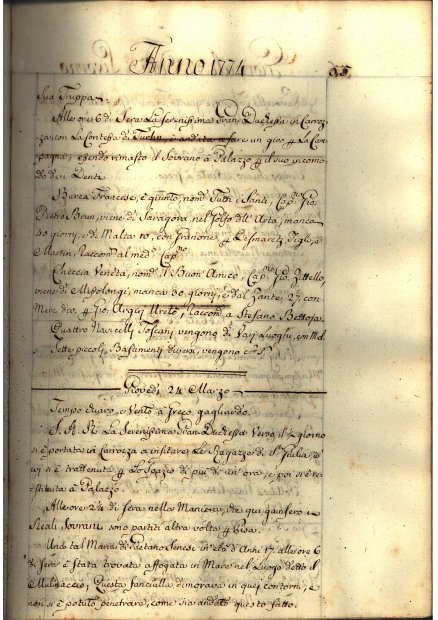 Anno 1774
65.
Sua Truppa.
Alle ore 6 di Sera La Serenissima Gran Duchessa in Carroz-
za, con La Contessa di Turlin, è andata a fare un giro La Cam-
pagna; essendo rimasto il Sovrano à Palazzo il suo incomo-
do dei Denti.
Barca Francese, è giunto, nom. Tutti i Santi, Cap.no Gio.
Pietro Brun, viene di Saragora, nel Golfo dell'Arta, manca
40 giorni, e di Malta 10, con Granone Desmaretz, Figli, e
Martin, Raccom. al med. Cap.no
Checcia Veneta, nom. il Buon Amico, Cap.no Gio. Zittello,
viene di Misolongi, manca 30 giorni, e dal Zante 27, con
Merc. div. Gio. Ureto, Raccom. a Stefano Bettosa.
Quattro Navicelli Toscani vengono di Varj Luoghi, con
Sette piccoli Bastimenti diversi, vengono
Giovedì 24 Marzo
Tempo chiaro, e Vento à Greco gagliardo.
S. A. R. La Serenissima Gran Duchessa Verso il giorno
si è portata in Carrozza a visitare Le Ragazze di S.ta Giulia, d'
ivi s'è trattenuta Lo Spazio di più di un'ora, e poi si è re-
stituita à Palazzo.
Alle ore 2¼ di sera nella Maniera, che qui giunsero i
Reali Sovrani sono partiti altra volta Pisa.
Una tal Maria di Gaetano Senese in età d'Anni 17 alle ore 6
di Sera è Stata trovata affogata in Mare nel Luogo detto il
Mulinaccio; Questa fanciulla dimorava in quei contorni, e
non si è potuto penetrare, come sia andato questo fatto.